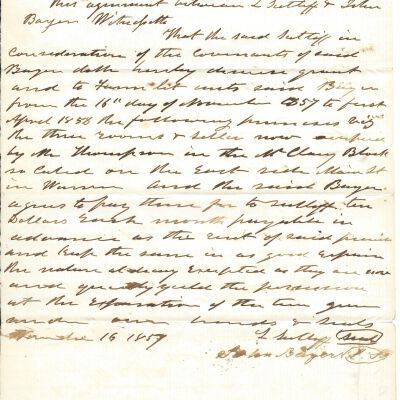 This agreement between L Sutliff & John
Bayer Witnesseth
That the said Sutliff in
Consideration of the Covenants of said
Bayer doth hereby demise grant
and to Farm let unto said Bayer
from the 16th day of November 1857 to first
April 1858 the following premises viz
the three rooms & seller now
by Mr Thompson in the McClary Block
so called on the East side Main St
in Warren and the said Bayer
agrees to pay there for to Sutliff ten
Dollars Each month payable in
advance as the rent of said
and keep the same in as good
the natural decay Excepted as they are now
and quietly yield the possession
at the Expiration of the time given
under our hands & seals
16 1857
L Sutliff Seal
John Bayer L.S